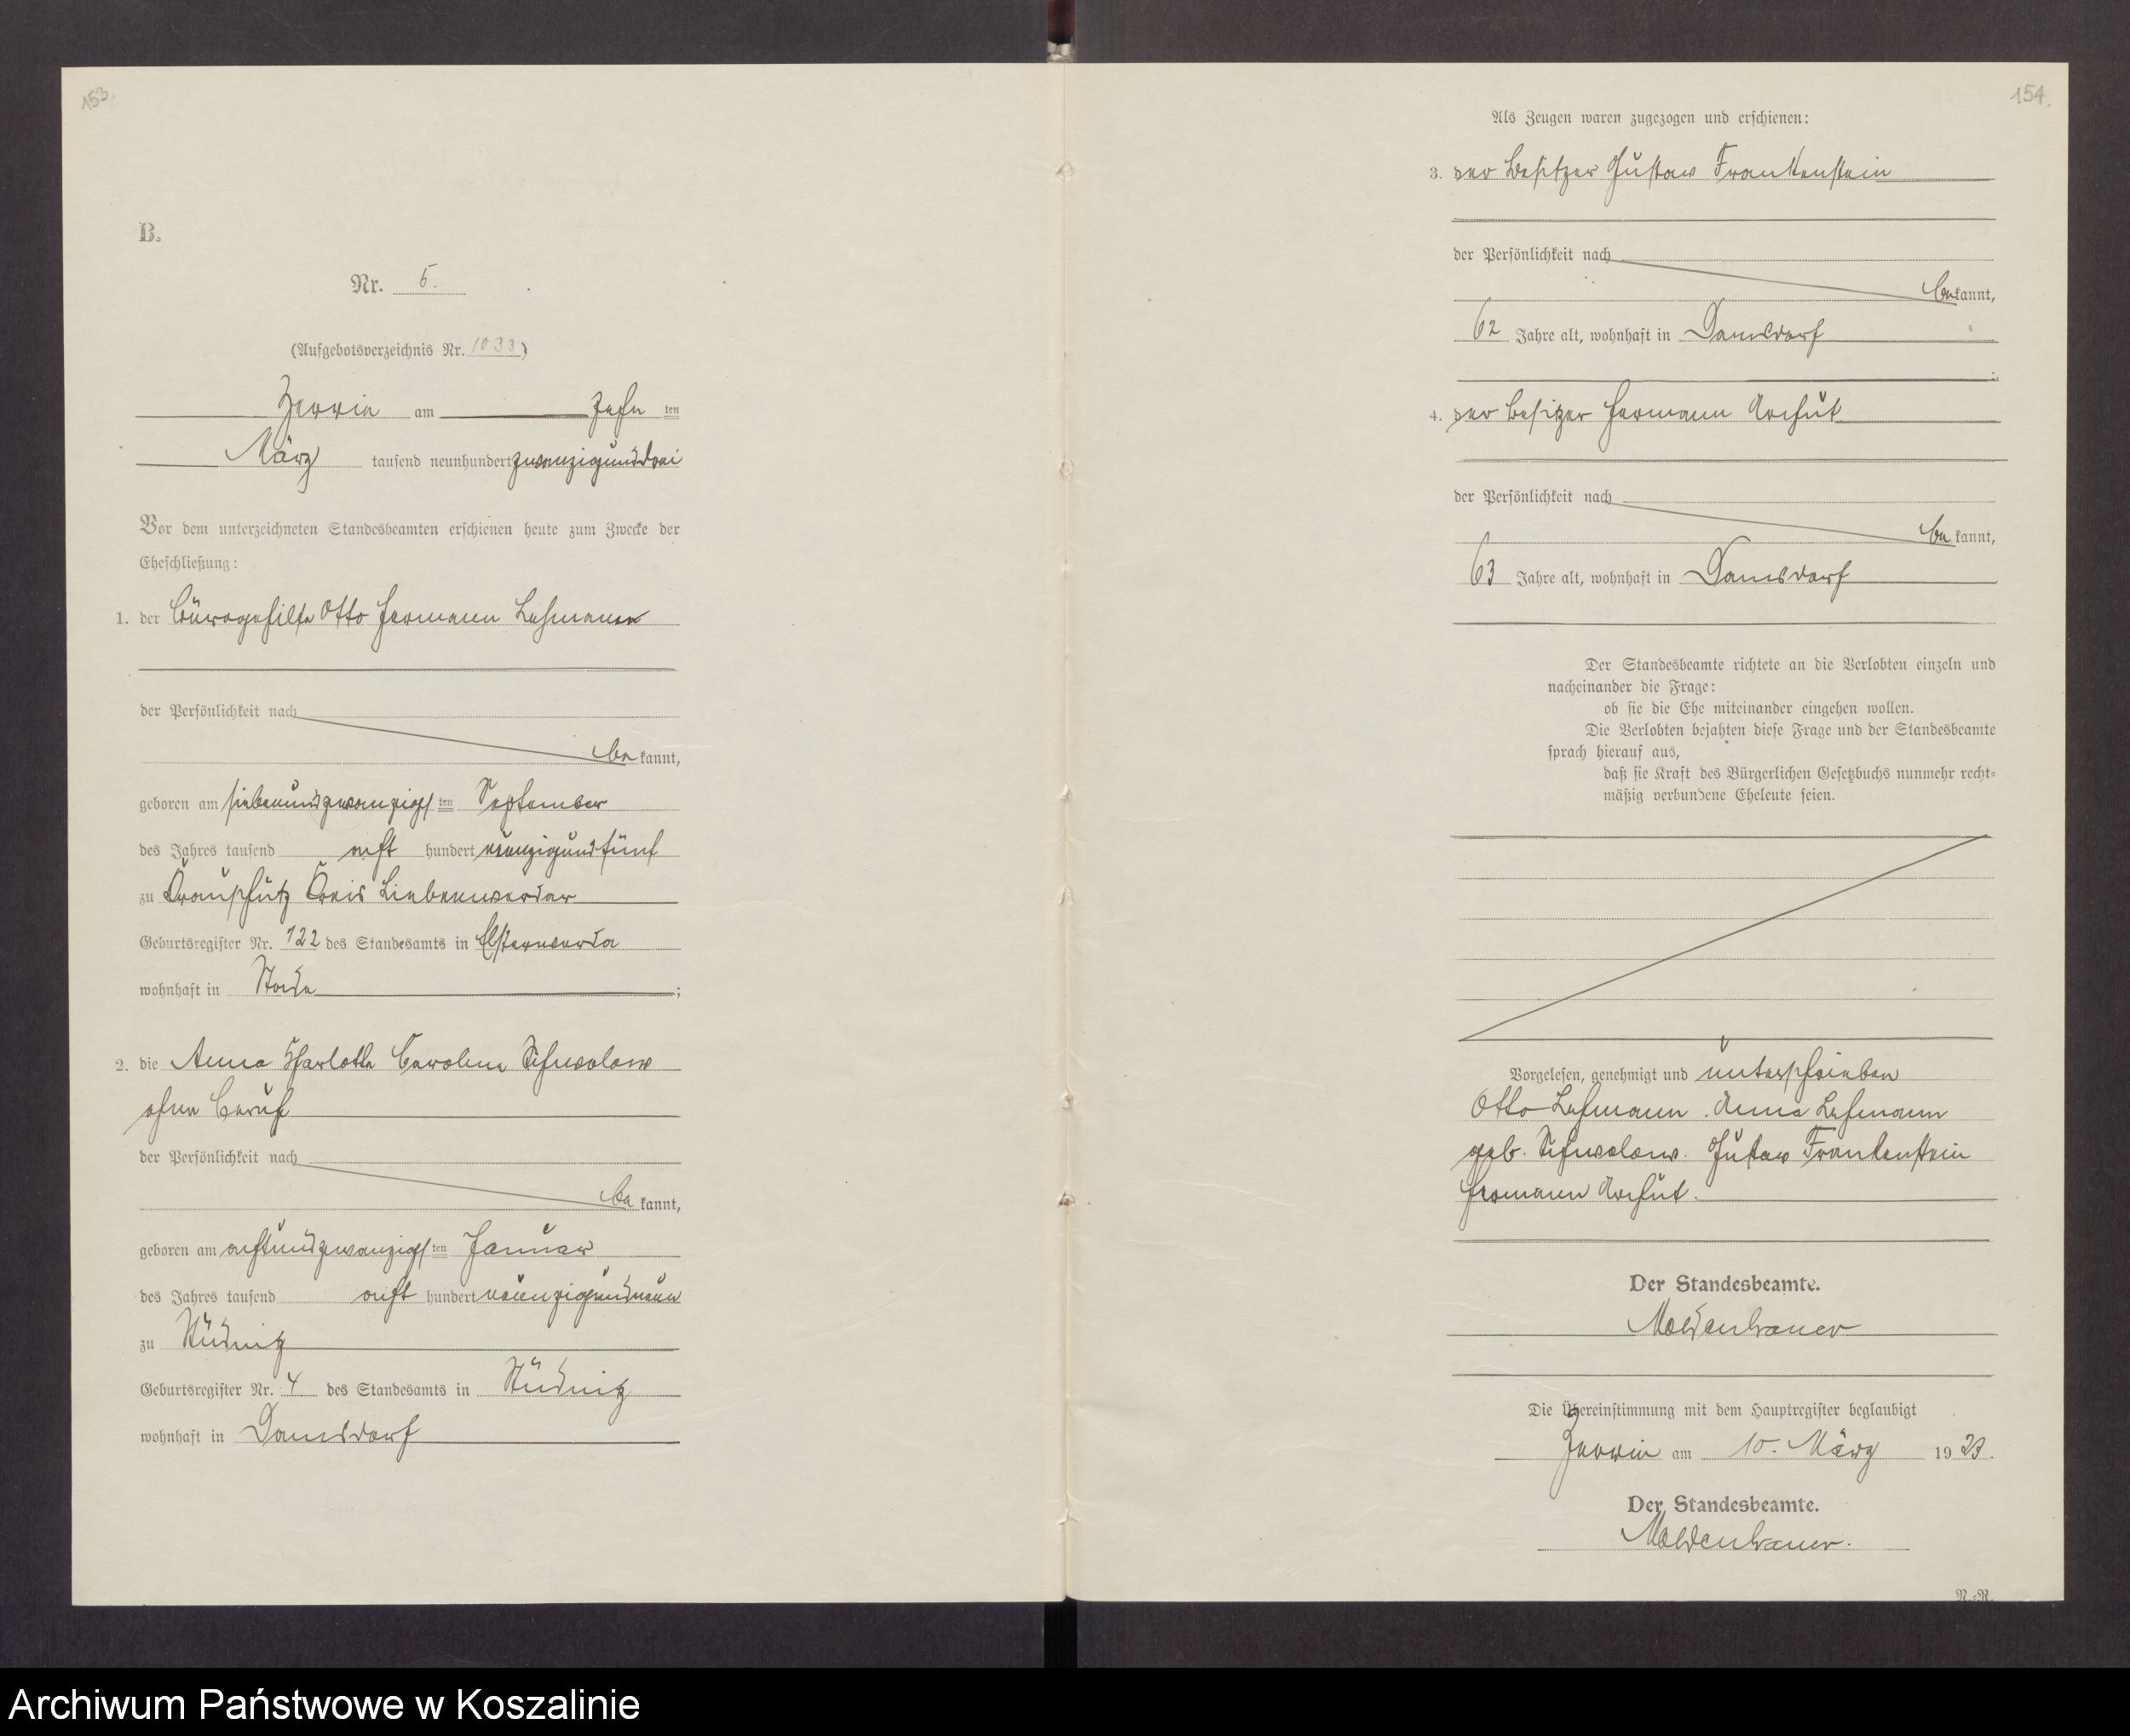 153.
B.
Nr. 5.
(Aufgebotsverzeichnis Nr. 1033)
Zerrin am zehn ten
März tausend neunhundert zwanzigunddrei
Vor dem unterzeichneten Standesbeamten erschienen heute zum Zwecke der
Eheschließung:
1. der Bürogehilfe Otto Hermann Lehmann
der Persönlichkeit nach
be kannt,
geboren am siebenundzwanzigs ten September
des Jahres tausend acht hundert neunzigundfünf
zu Krauschütz Kreis Liebenwerdar
Geburtsregister Nr. 122 des Standesamts in Elsterwerda
wohnhaft in Stade ;
2. die Anna Charlotte Caroline Schwolow
ohne Beruf
der Persönlichkeit nach
be kannt,
geboren am achtundzwanzigs ten Januar
des Jahres tausend acht hundert neunzigundneun
zu Stüdnitz
Geburtsregister Nr. 4 des Standesamts in Stüdnitz
wohnhaft in Damsdorf
154.
Als Zeugen waren zugezogen und erschienen:
3. der Besitzer Gustav Frankenstein
der Persönlichkeit nach
be kannt,
62 Jahre alt, wohnhaft in Damsdorf
;
4. der Besitzer Hermann Archut
der Persönlichkeit nach
be kannt,
63 Jahre alt, wohnhaft in Damsdorf
Der Standesbeamte richtete an die Verlobten einzeln und
nacheinander die Frage:
ob sie die Ehe miteinander eingehen wollen.
Die Verlobten bejahten diese Frage und der Standesbeamte
sprach hierauf aus,
daß sie Kraft des Bürgerlichen Gesetzbuchs nunmehr recht-
mäßig verbundene Eheleute seien.
Vorgelesen, genehmigt und unterschrieben
Otto Lehmann. Anna Lehmann
geb. Schwolow. Gustav Frankenstein
Hermann Archut.
Der Standesbeamte.
Moldenhauer
Die Übereinstimmung mit dem Hauptregister beglaubigt
Zerrin am 10. März 19 23.
Der Standesbeamte.
Moldenhauer.
N.-R.
Archiwum Państwowe w Koszalinie